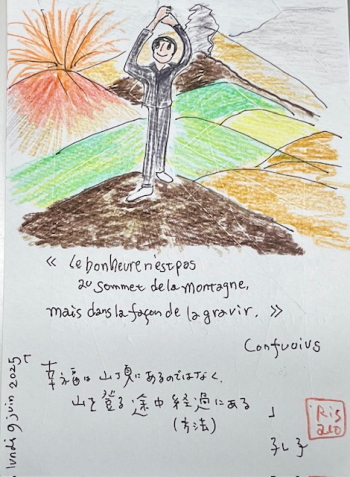 « Le bonheur n'est pas
au sommet de la montagne,
mais dans la façon de la gravir. »
Confucius
「幸福は山頂にあるのではなく、
山を登る途中経過にある」
(方法)
孔子
lundi 9 juin 2025